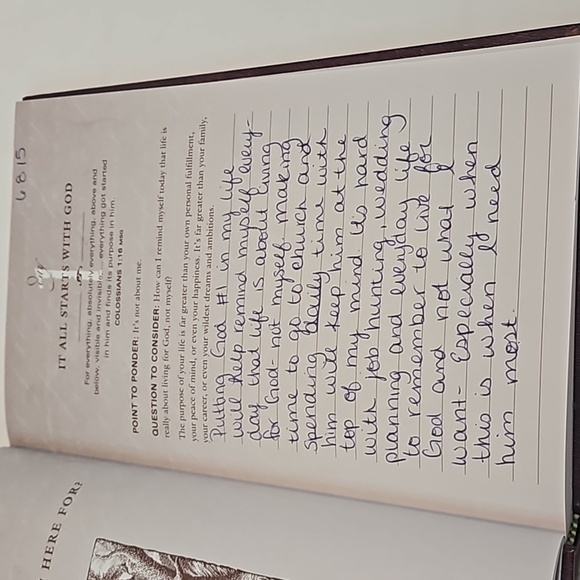 6 8 15
Day 1
IT ALL STARTS WITH GOD
For everything, absolutely everything, above and
below, visible and invisible, ... everything got started
in him and finds its purpose in him.
COLOSSIANS 1:16 MSG
POINT TO PONDER: It's not about me.
QUESTION TO CONSIDER: How can I remind myself today that life is
really about living for God, not myself?
The purpose of your life is far greater than your own personal fulfillment,
your peace of mind, or even your happiness. It's far greater than your family,
your career, or even your wildest dreams and ambitions.
Putting God #1 in my life
will help remind myself every-
day that life is about living
for God- not myself. making
time to go to church and
spending daily time with
him will keep him at the
top of my mind. Its hard
with job hunting, wedding
planning and everyday life
to remember to live for
God and not what I
want- Especially when
this is when I need
him most.
HERE FOR?